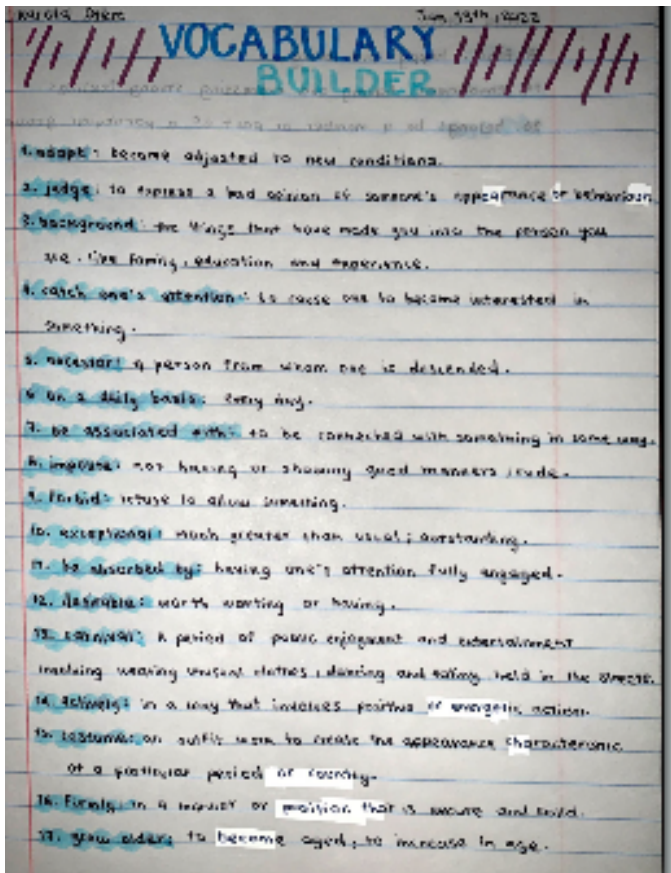 Jan 19th, 2022
VOCABULARY
BUILDER
1. adapt: become adjusted to new conditions.
2. judge: to express a bad opinion of someone's appearance or behaviour.
3. background: the things that have made you into the person you
are. like family, education and experience.
4. catch one's attention: to cause one to become interested in
something.
5. ancestor: a person from whom one is descended.
6. on a daily basis: every day.
7. be associated with: to be connected with something in some way.
8. impolite: not having or showing good manners; rude.
9. forbid: refuse to allow something.
10. exceptional: much greater than usual; outstanding.
11. be absorbed by: having one's attention fully engaged.
12. desirable: worth wanting or having.
13. carnival: A period of public enjoyment and entertainment
involving wearing unusual clothes, dancing and eating, held in the streets.
14. actively: in a way that involves positive or energetic action.
15. costume: an outfit worn to create the appearance characteristic
of a particular period or country.
16. firmly: in a manner or position that is secure and solid.
17. grow older: to become aged; to increase in age.